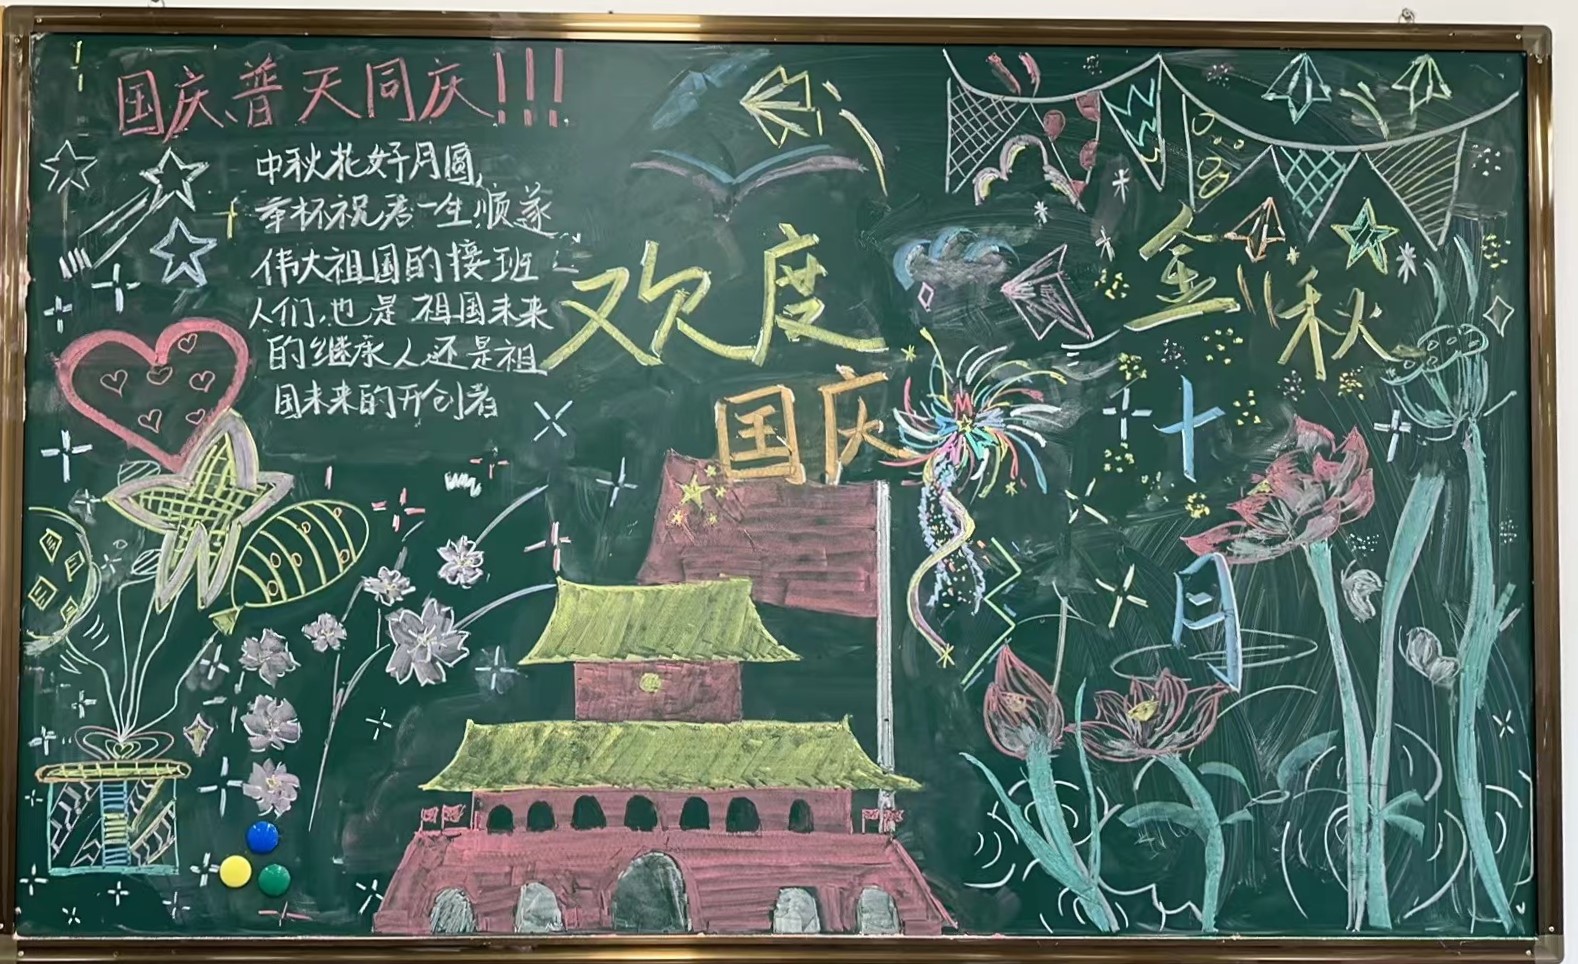 国庆普天同庆!!!
中秋花好月圆,
幸杯祝君一生顺遂
伟大祖国的接班
人们,也是祖国未来
的继承人,还是祖
国未来的开创者
欢度
国庆
金秋
十
月